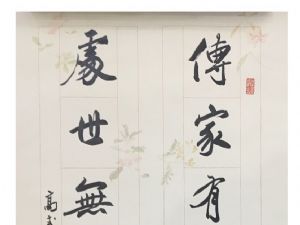 傳家有
處世無
高